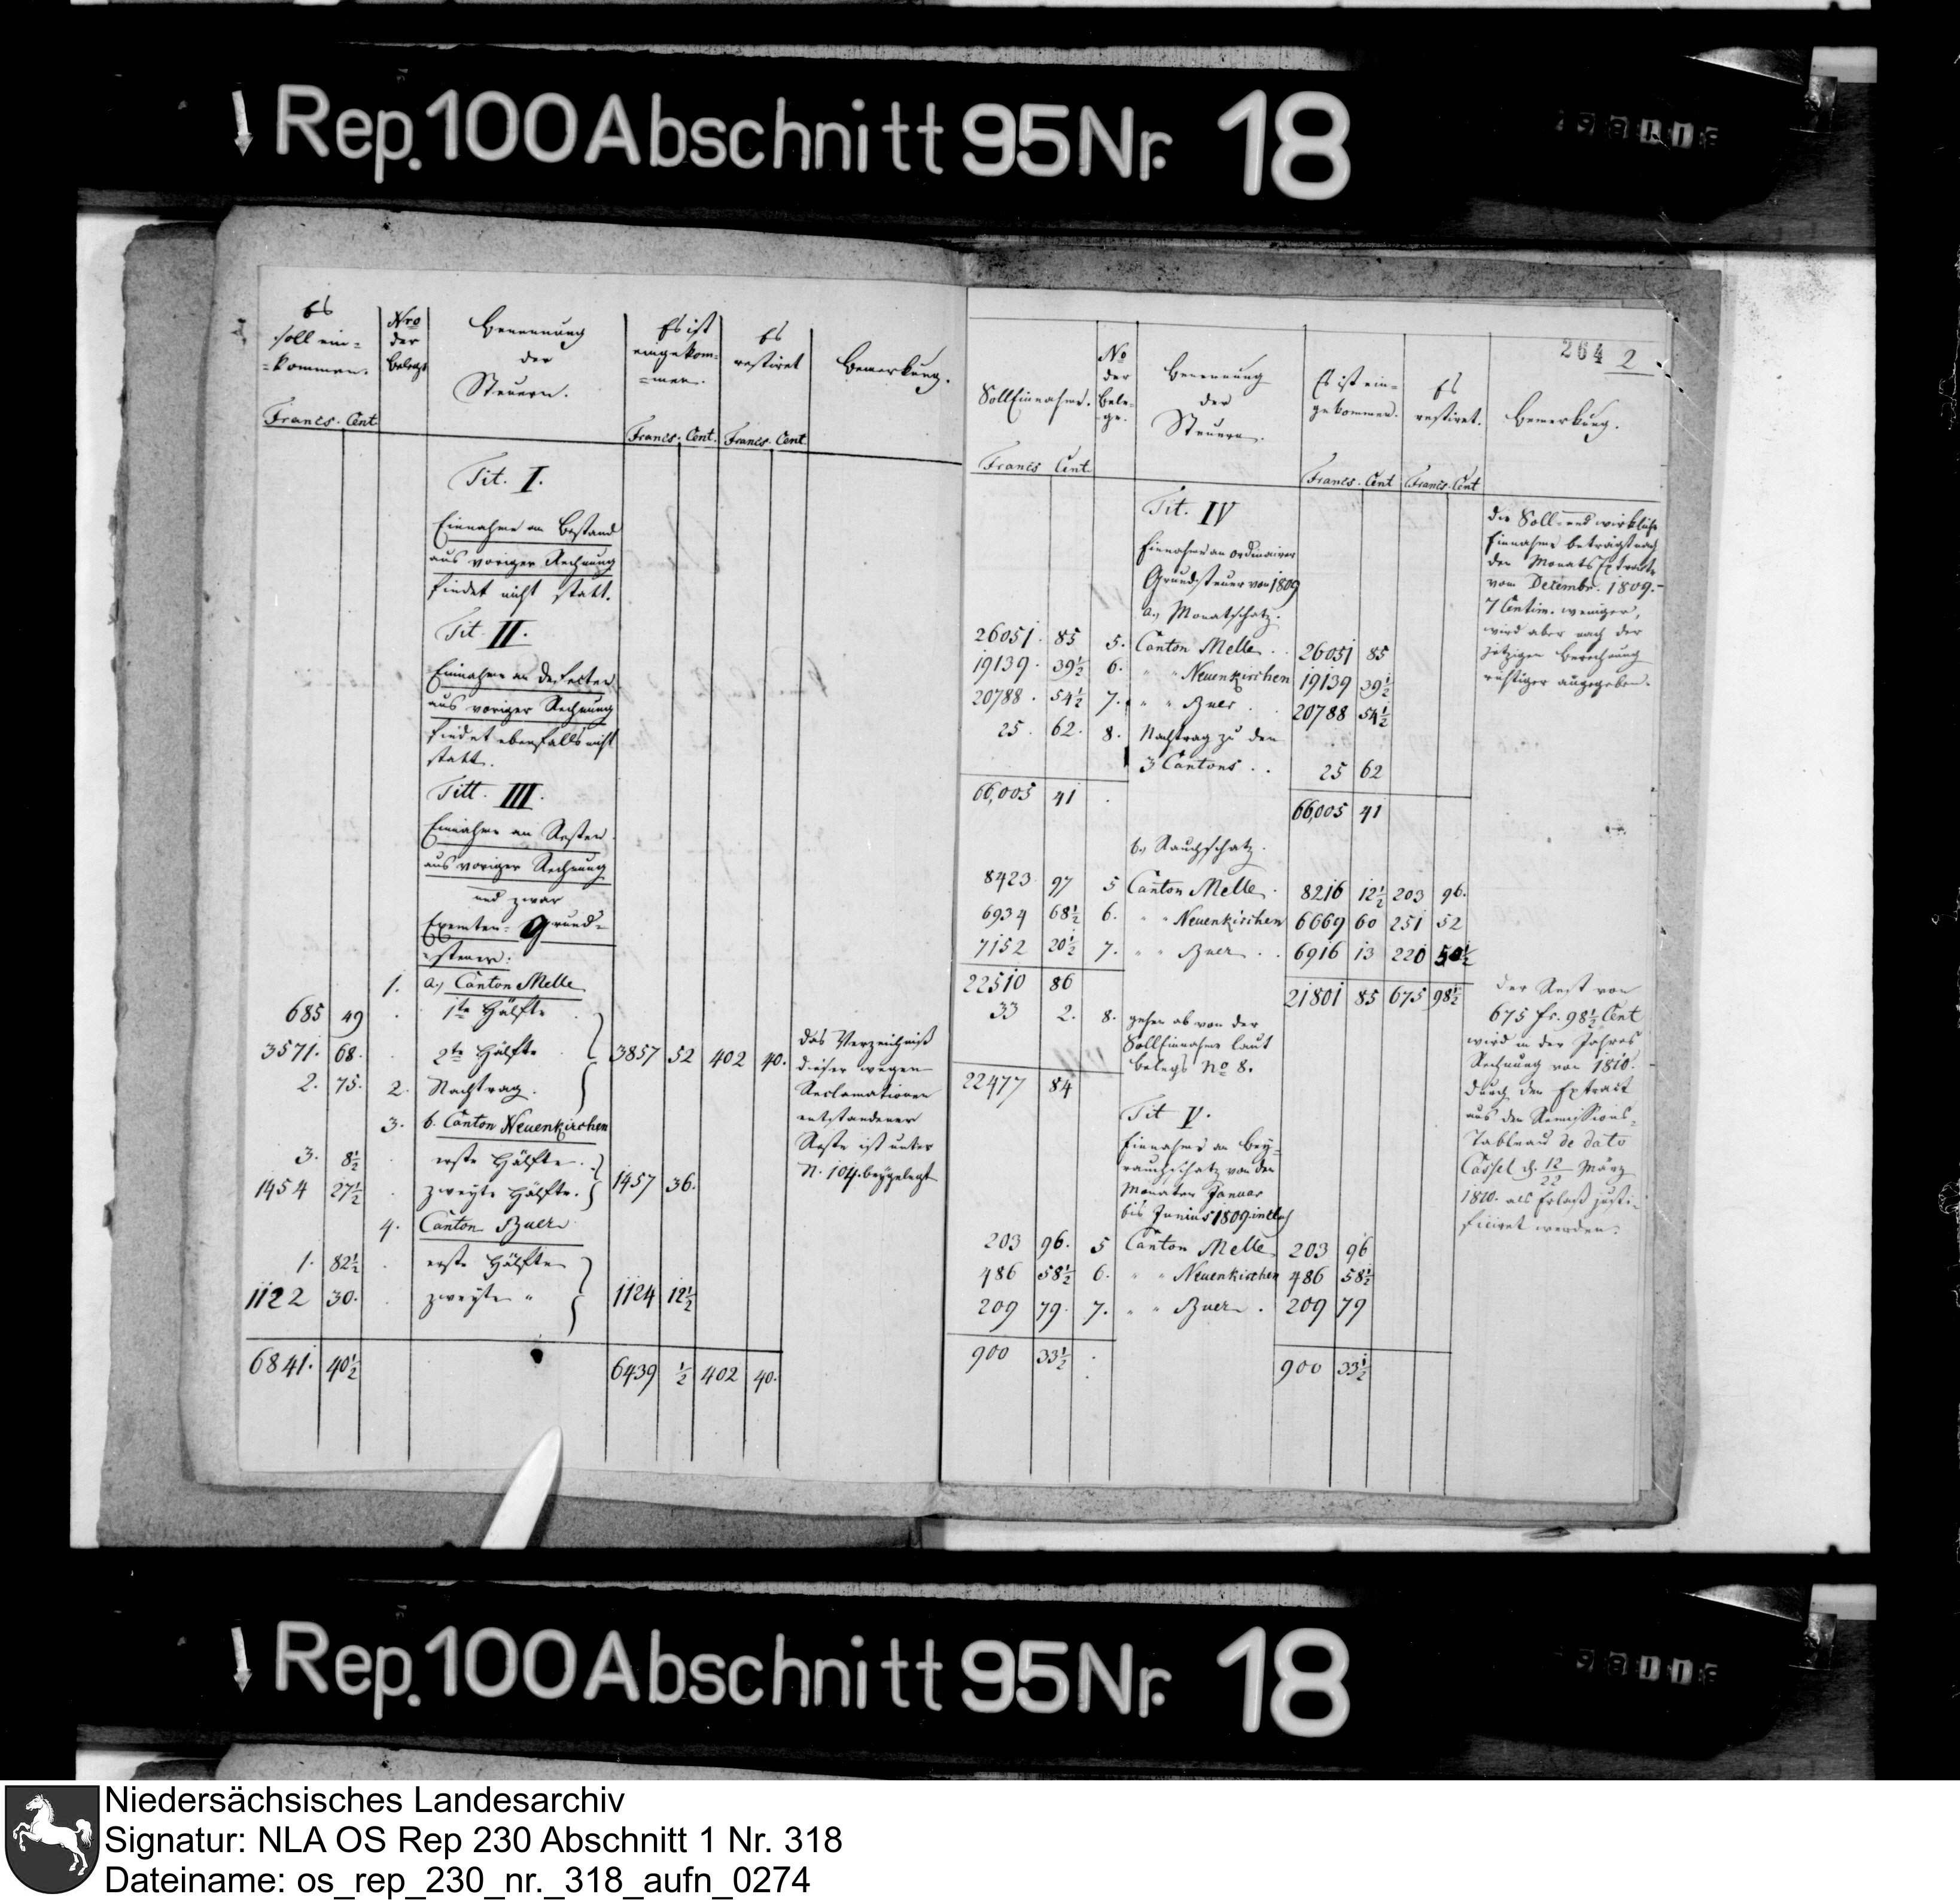 Rep. 100 Abschnitt 95 Nr. 18
Es
soll ein=
=kommen.
Francs. Cent
Nro
der
Belege
Benennung
der
Steuern.
Es ist
eingekom=
=men.
Francs. Cent.
Es
restiret
Francs. Cent
Bemerkung.
Tit. I.
Einnahme an Bestand
aus voriger Rechnung
findet nicht statt.
Tit. II.
Einnahme an Defecten
aus voriger Rechnung
findet ebenfalls nicht
statt.
Titt. III.
Einnahme an Resten
aus voriger Rechnung
und zwar
Exemten= Grund=
=steuer:
1. a., Canton Melle
685 49 1te Hälfte
3571. 68. 2te Hälfte 3857 52 402 40.
2. 75. 2. Nachtrag.
3. b. Canton Neuenkirchen
3. 8½ erste Hälfte.
1454 27½ zweyte Hälfte. 1457 36.
4. Canton Buer
1. 82½ erste Hälfte
1122 30. zweyte " 1124 12½
6841. 40½ 6439 ½ 402 40.
das Verzeichniß
dieser wegen
Reclamationen
entstandener
Reste ist unter
N. 104. beygelegt
264 2
Soll Einnahme.
Francs Cent
No
der
Bele=
ge.
Benennung
der
Steuern.
Es ist ein=
gekommen.
Francs. Cent
Es
restiret.
Francs. Cent
Bemerkung.
Tit. IV
Einnahme an ordinairer
Grundsteuer von 1809
a., Monatschatz.
26051. 85 5. Canton Melle 26051 85
19139. 39½ 6. " " Neuenkirchen 19139 39½
20788. 54½ 7. " " Buer 20788 54½
25. 62. 8. Nachtrag zu den
3 Cantons . . 25 62
66,005 41 66,005 41
die Soll= und wirkliche
Einnahme beträgt nach
den Monats Extracte
vom Decembr. 1809.
7 Centim. weniger,
wird aber nach der
jetzigen Berechnung
richtiger angegeben.
b., Rauchschatz.
8423 97 5 Canton Melle. 8216 12½ 203 96.
6934 68½ 6. " " Neuenkirchen 6669 60 251 52
7152 20½ 7. " " Buer . . 6916 13 220 50½
22510 86 21801 85 675 98½
33 2. 8. gehen ab von der
Soll Einnahme laut
Belegs No 8.
22477 84
der Rest von
675 fr. 98½ Cent
wird in der Jahres
Rechnung von 1810.
durch den Extract
aus den Remissions=
Tableau de dato
Cassel d. 12/22 März
1810. als Erlaß justi=
ficiret werden.
Tit V.
Einnahme an Bey=
rauchschatz von den
Monaten Januar
bis Junius 1809. incl.
203 96. 5 Canton Melle 203 96
486 58½ 6. " " Neuenkirchen 486 58½
209 79. 7. " " Buer . 209 79
900 33½ 900 33½
Rep. 100 Abschnitt 95 Nr. 18
Niedersächsisches Landesarchiv
Signatur: NLA OS Rep 230 Abschnitt 1 Nr. 318
Dateiname: os_rep_230_nr._318_aufn_0274